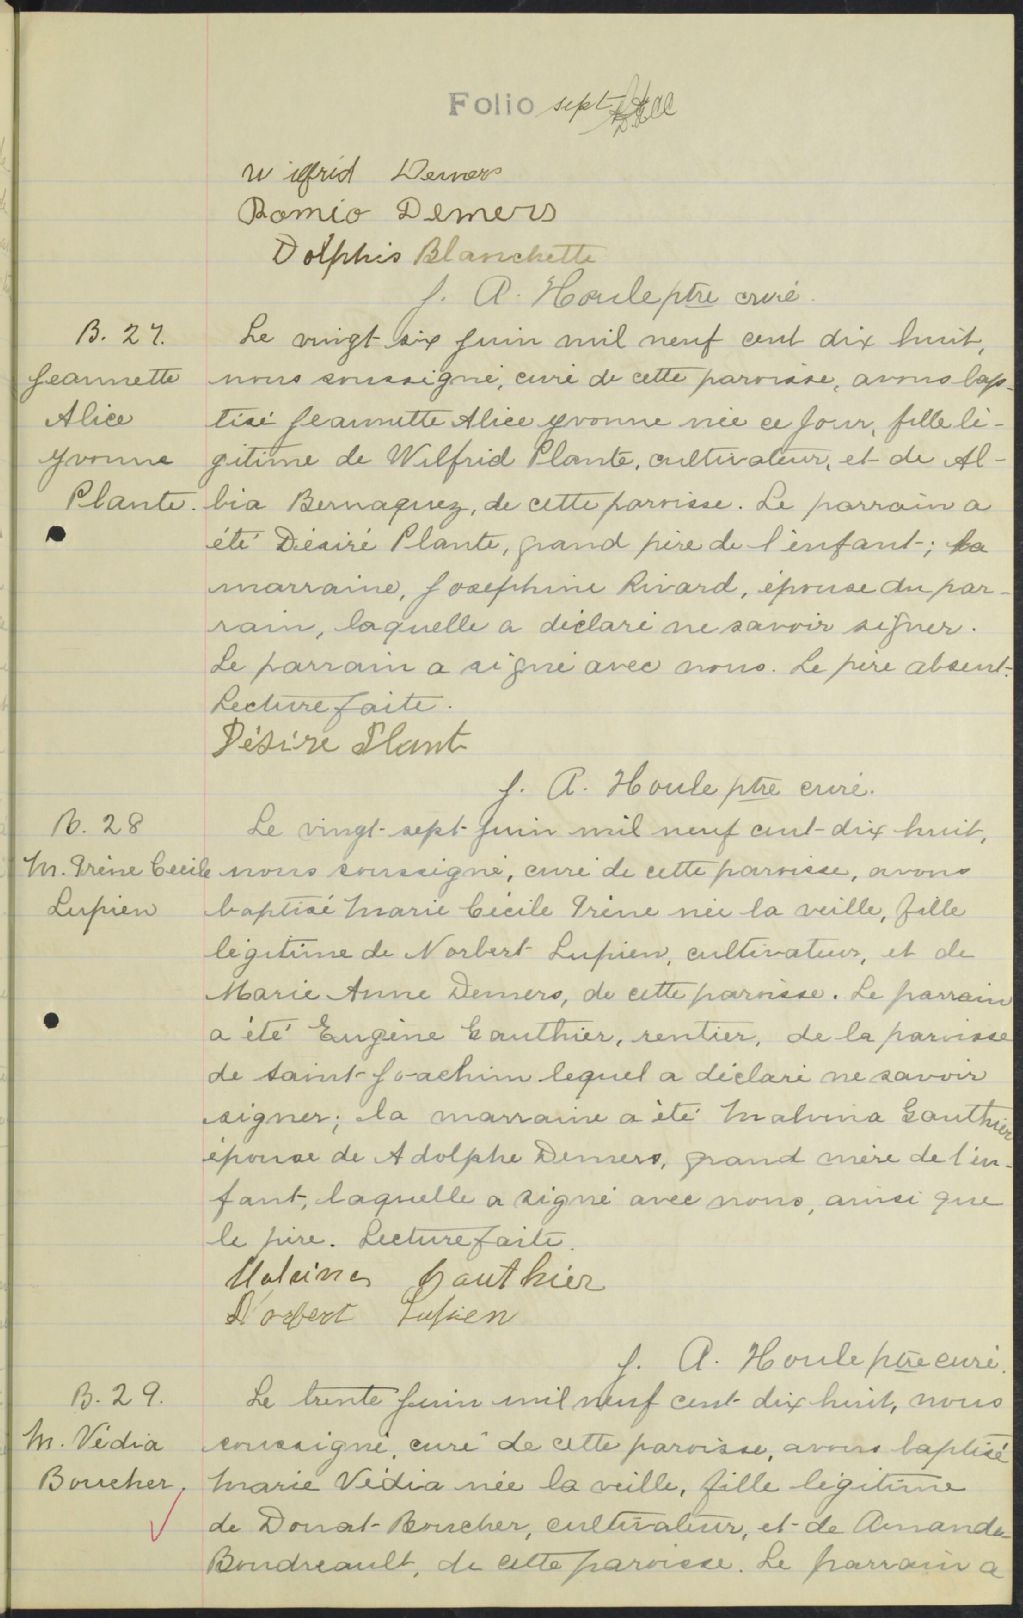 Folio sept
Wilfrid Demers
Romio Demers
Dolphis Blanchette
J. A. Houle ptre curé.
B. 27.
Jeannette
Alice
Yvonne
Plante.
Le vingt-six Juin mil neuf cent dix huit,
nous soussigné, curé de cette paroisse, avons bap-
tisé Jeannette Alice Yvonne née ce jour, fille lé-
gitime de Wilfrid Plante, cultivateur, et de Al-
bia Bernaquez, de cette paroisse. Le parrain a
été Désiré Plante, grand père de l'enfant; la
marraine, Josephine Rivard, épouse du par-
rain, laquelle a déclaré ne savoir signer.
Le parrain a signé avec nous. Le père absent.
Lecture faite.
Désire Plant
J. A. Houle ptre curé.
B. 28
M. Irène Cécile
Lupien
Le vingt-sept Juin mil neuf cent-dix huit,
nous soussigné, curé de cette paroisse, avons
baptisé Marie Cécile Irène née la veille, fille
légitime de Norbert Lupien, cultivateur, et de
Marie Anne Demers, de cette paroisse. Le parrain
a été Eugène Gauthier, rentier, de la paroisse
de Saint-Joachim lequel a déclaré ne savoir
signer; la marraine a été Malvina Gauthier
épouse de Adolphe Demers, grand mère de l'en-
fant, laquelle a signé avec nous, ainsi que
le père. Lecture faite.
Malvina Gauthier
Norbert Lupien
J. A. Houle ptre curé.
B. 29.
M. Védia
Boucher,
Le trente Juin mil neuf cent-dix huit, nous
soussigné, curé de cette paroisse, avons baptisé
Marie Védia née la veille, fille légitime
de Donat Boucher, cultivateur, et de Amanda
Boudreault, de cette paroisse. Le parrain a